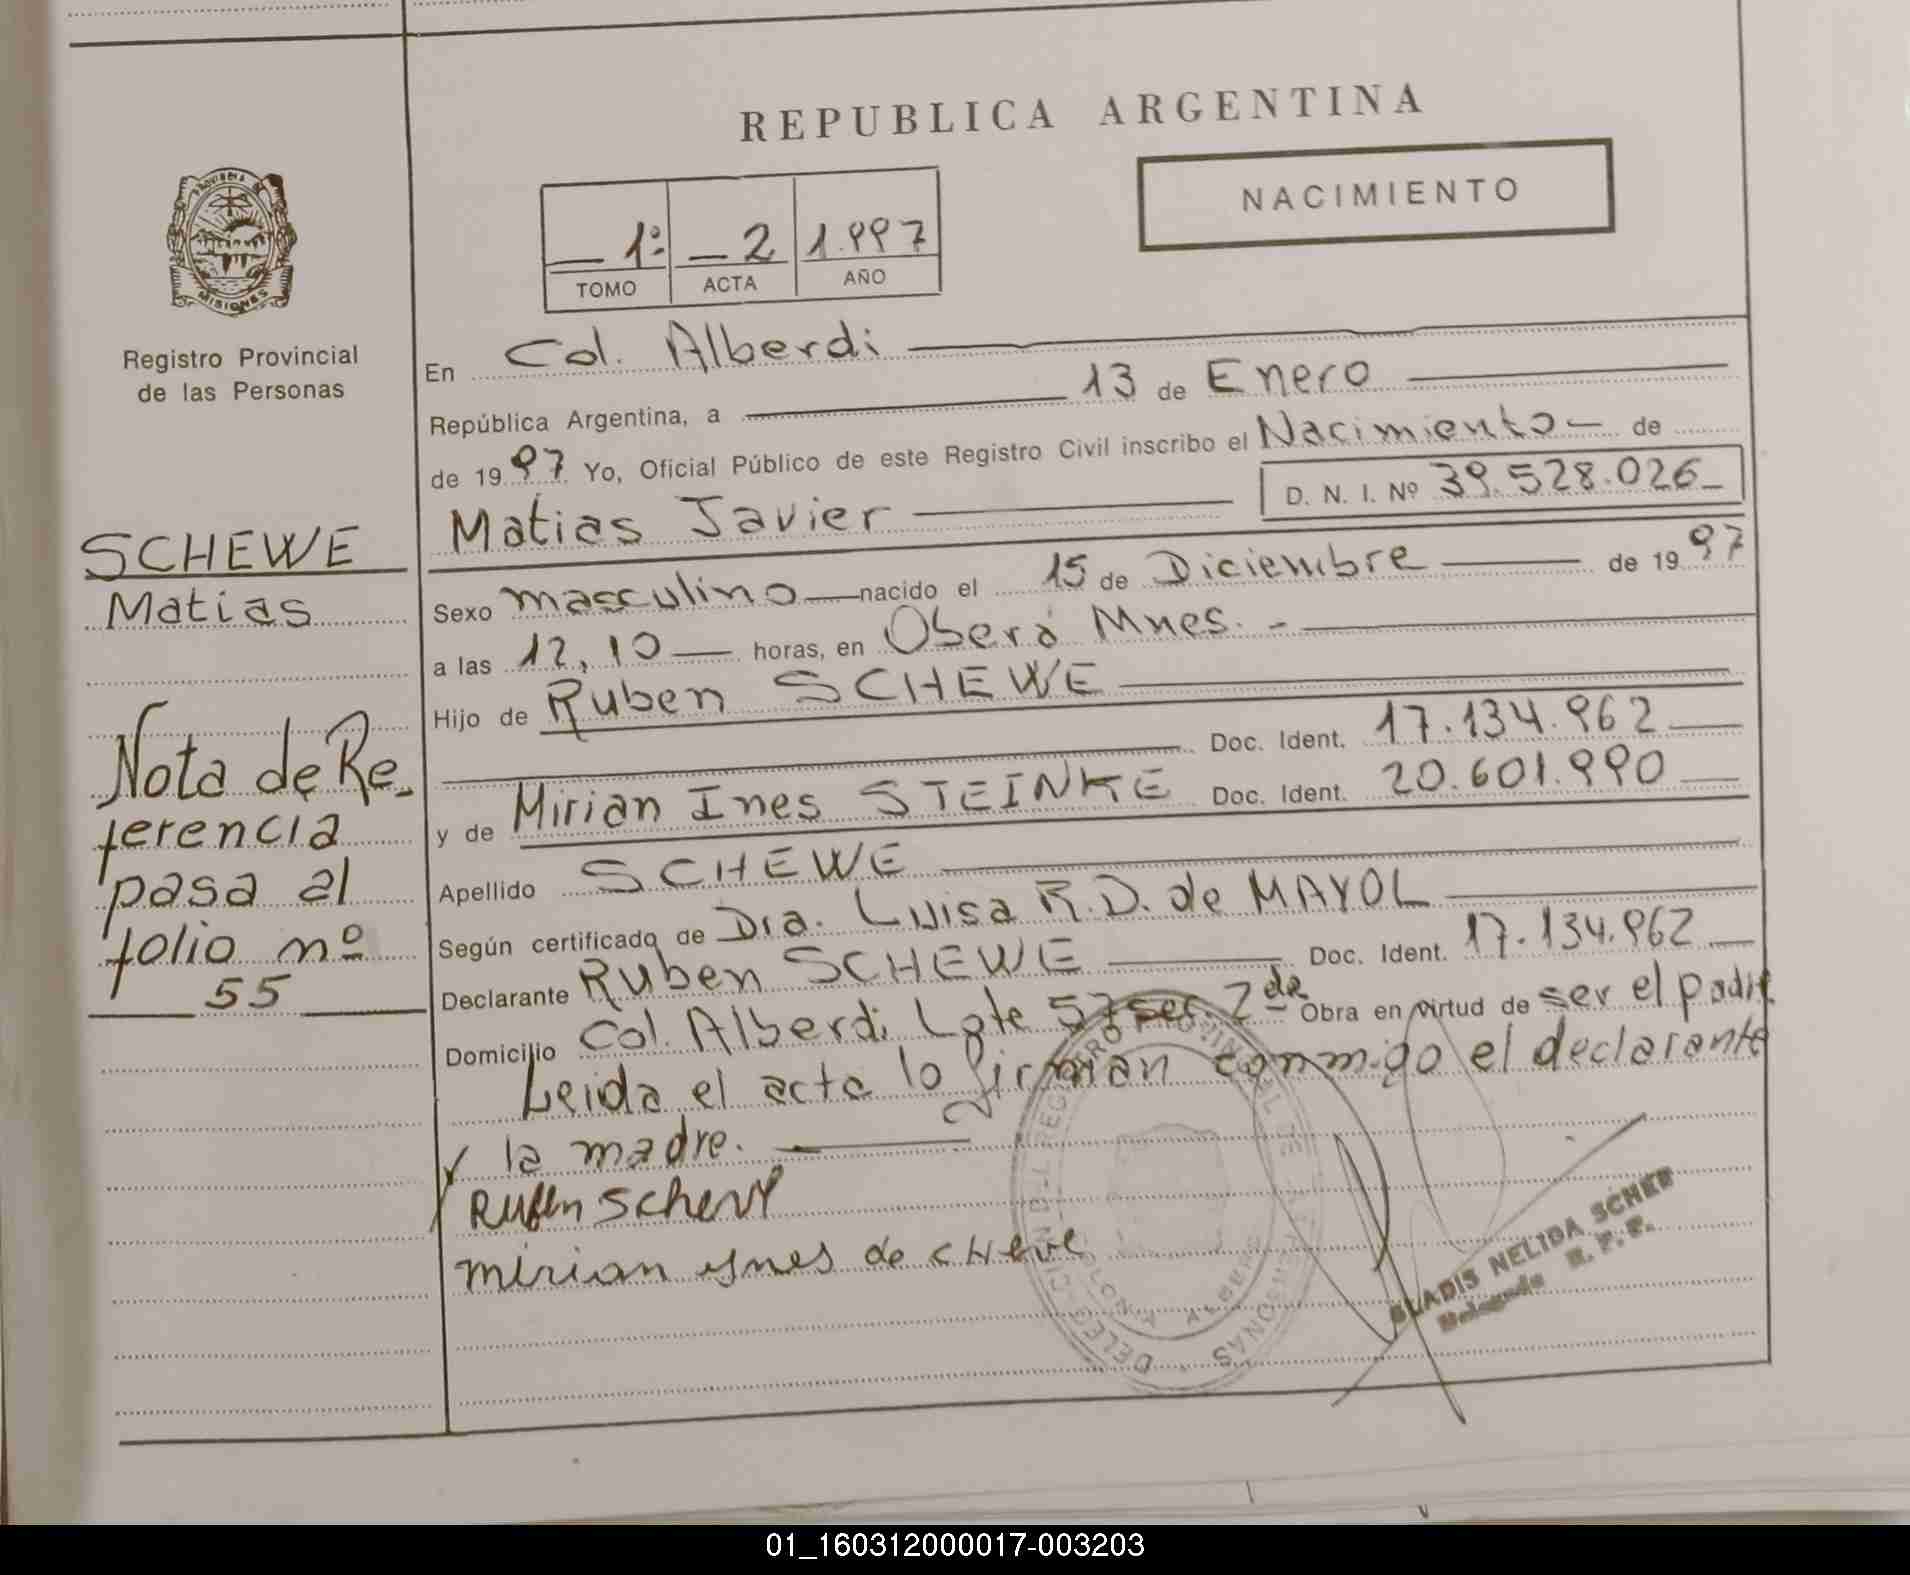 REPUBLICA ARGENTINA
NACIMIENTO
1º 2 1.997
TOMO ACTA AÑO
PROVINCIA DE
MISIONES
Registro Provincial
de las Personas
SCHEWE
Matias
Nota de Re_
ferencia
pasa al
folio nº
55
En Col. Alberdi
República Argentina, a 13 de Enero
de 1997 Yo, Oficial Público de este Registro Civil inscribo el Nacimiento de
Matias Javier D. N. I. Nº 39.528.026
Sexo masculino nacido el 15 de Diciembre de 1997
a las 12,10 horas, en Oberá Mnes.
Hijo de Ruben SCHEWE
Doc. Ident. 17.134.962
y de Mirian Ines STEINKE Doc. Ident. 20.601.990
Apellido SCHEWE
Según certificado de Dra. Luisa R.D. de MAYOL
Declarante Ruben SCHEWE Doc. Ident. 17.134.962
Domicilio Col. Alberdi Lote 57 sec. 2da Obra en virtud de ser el padre
Leida el acta lo firman conmigo el declarante
y la madre.
Ruben Schewe
mirian ynes de cHewe
DELEGACION DEL REGISTRO PROVINCIAL DE LAS PERSONAS
COLONIA ALBERDI
GLADIS NELIDA SCHER
Delegada R. P. P.
01_160312000017-003203